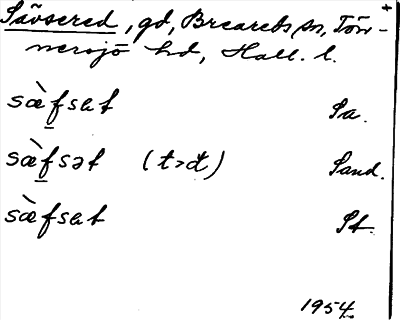 Sävsered, gd, Breareds sn, Tön-
nersjö hd, Hall. l.
sæ̀f̲sɐt Sa.
sæ̀f̲sət (t>đ) Sand.
sæ̀fsɐt St.
1954